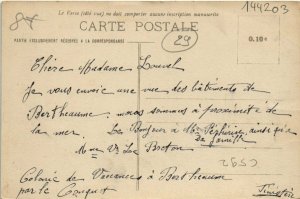 Le Recto (côté vue) ne doit comporter aucune inscription manuscrite
144203
CARTE POSTALE
29
PARTIE EXCLUSIVEMENT RÉSERVÉE A LA CORRESPONDANCE
0.10
Chère Madame Louvel
Je vous envoie une vue des bâtiments de
Bertheaume, nous sommes à proximité de
la mer. Le Bonjour à Mr Zéphirin, ainsi que
sa famille
Mme Ve Le Breton
Colonie de Vacances à Bertheaume
par le Conquet
Finistère